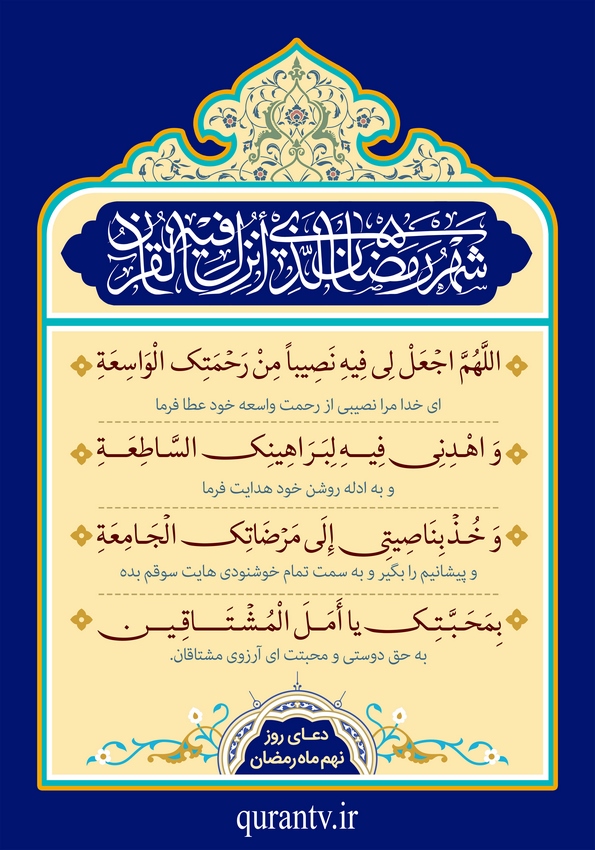 شهر رمضان الذی أنزل فیه القرآن
اللَّهُمَّ اجْعَلْ لِی فِیهِ نَصِیباً مِنْ رَحْمَتِک الْوَاسِعَةِ
ای خدا مرا نصیبی از رحمت واسعه خود عطا فرما
وَ اهْدِنِی فِیهِ لِبَرَاهِینِک السَّاطِعَةِ
و به ادله روشن خود هدایت فرما
وَ خُذْ بِنَاصِیتِی إِلَی مَرْضَاتِک الْجَامِعَةِ
و پیشانیم را بگیر و به سمت تمام خوشنودی هایت سوقم بده
بِمَحَبَّتِک یا أَمَلَ الْمُشْتَاقِینَ
به حق دوستی و محبتت ای آرزوی مشتاقان.
دعای روز
نهم ماه رمضان
qurantv.ir